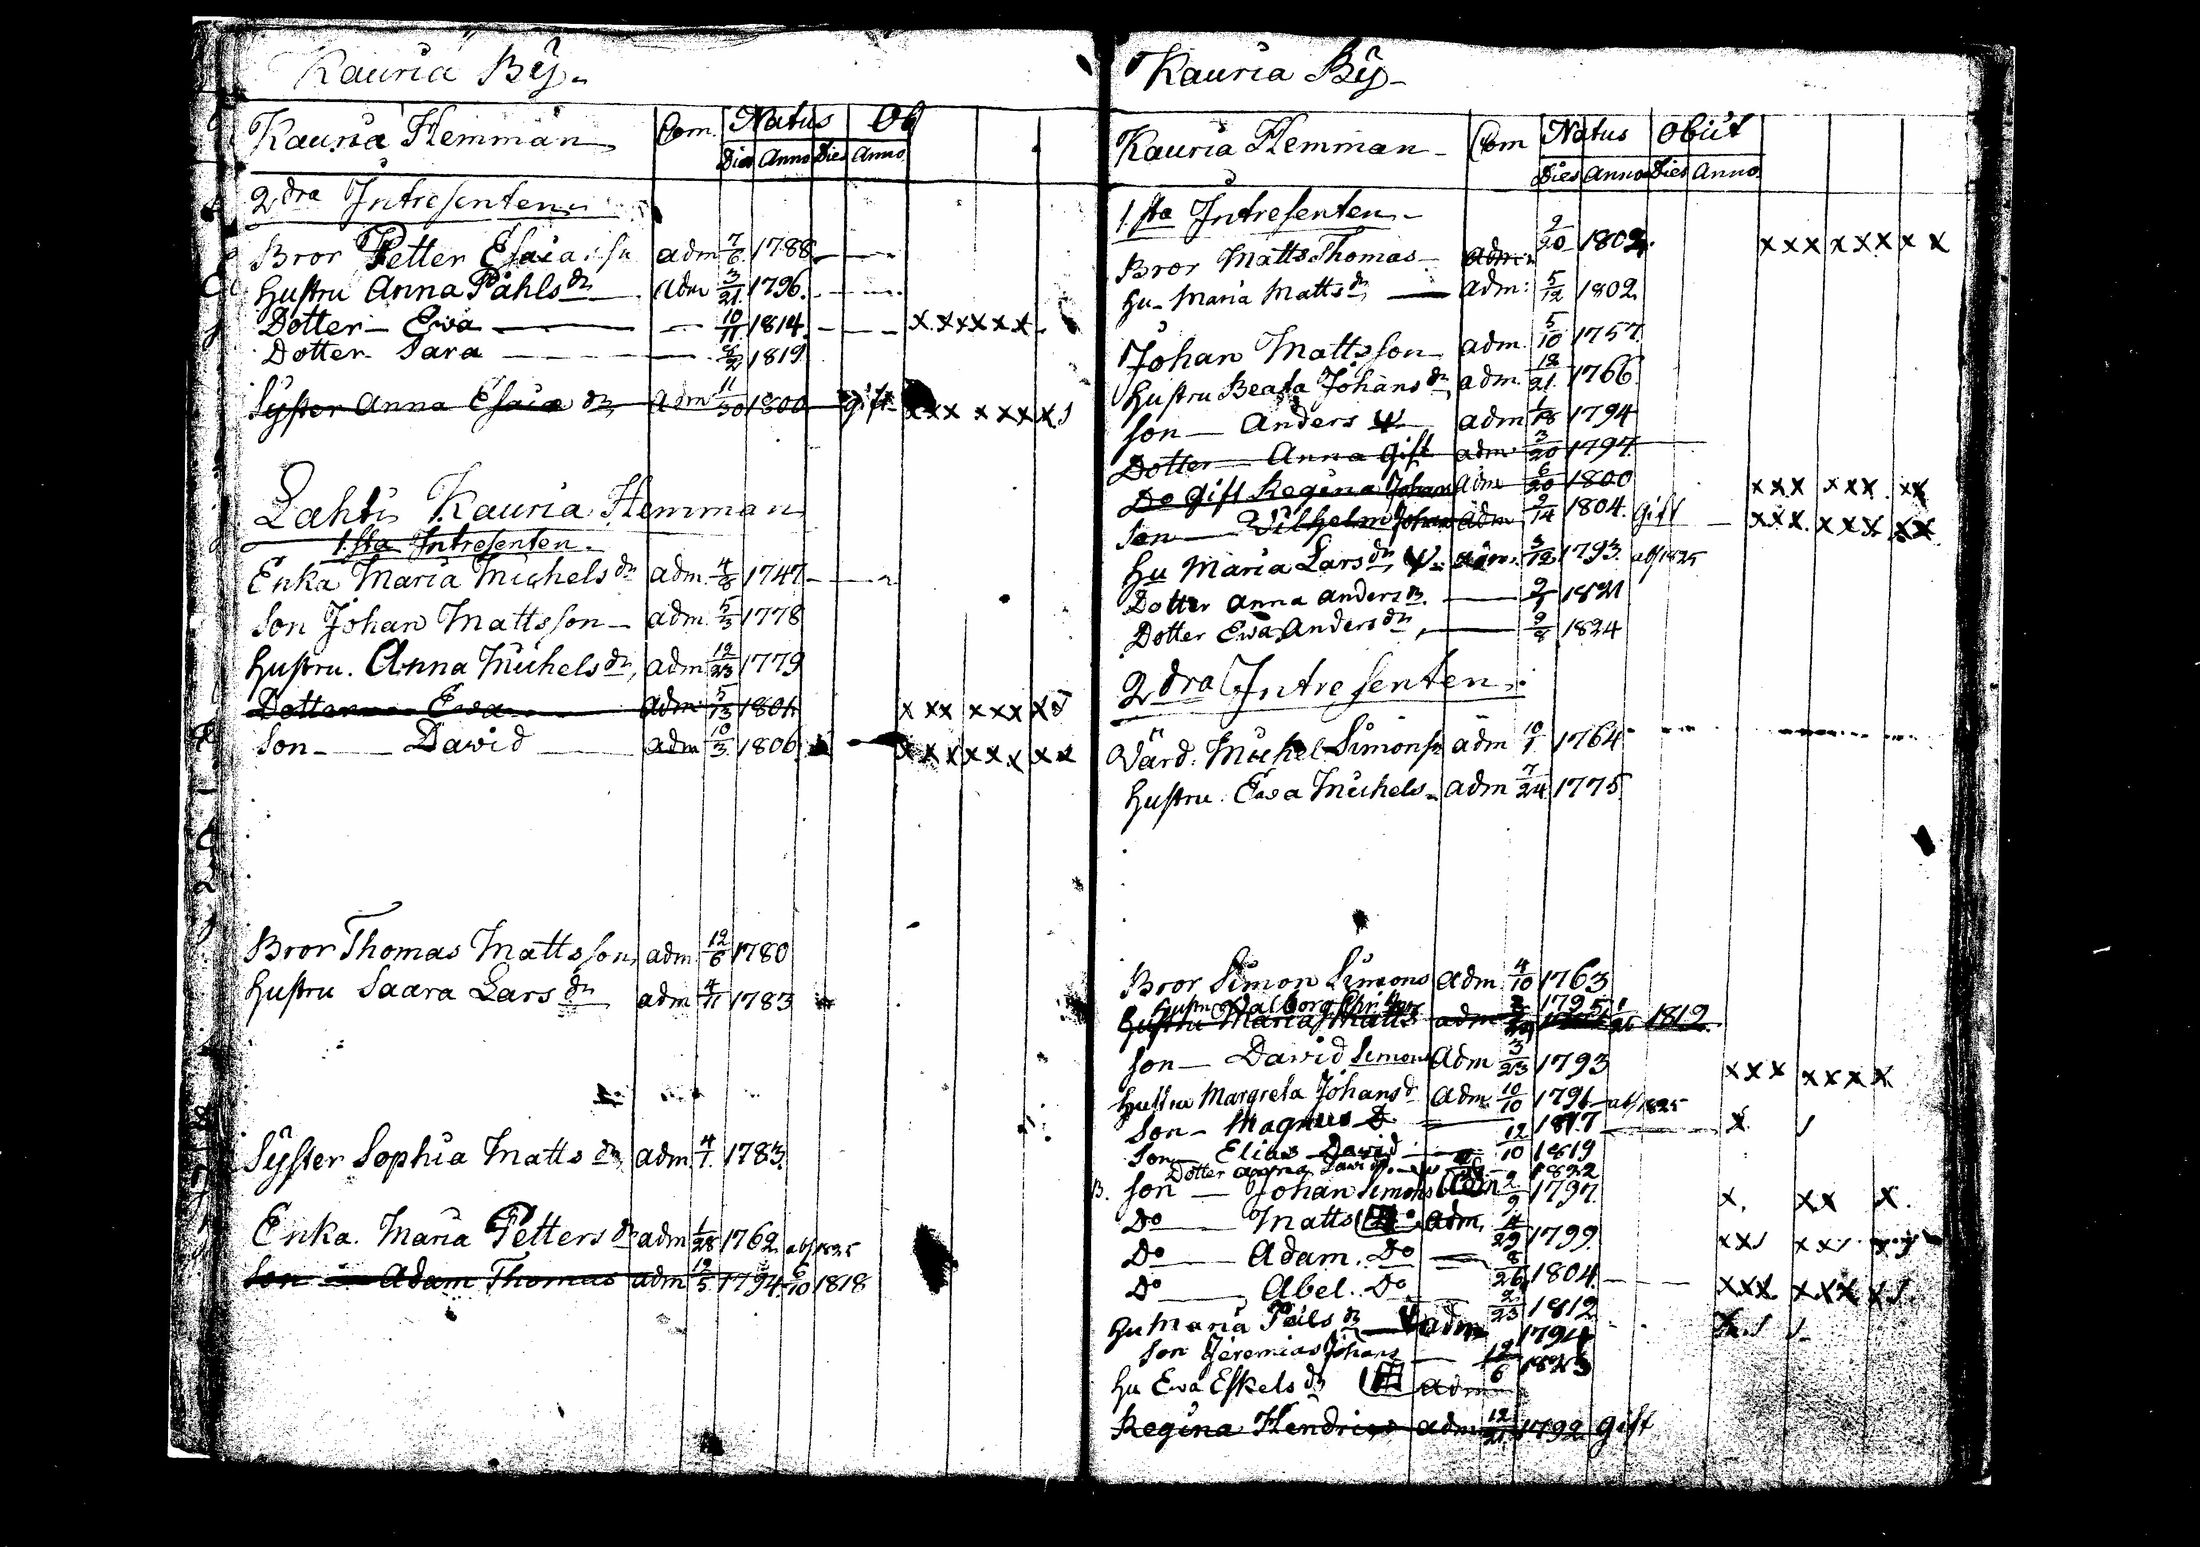 Kauria By
Kauria Hemman Com. Natus Ob
Dies Anno Dies Anno
2dra Intressenten
Bror Petter Esaiassn adm 7/6 1788
Hustru Anna Påhls dr adm 3/21 1796
Dotter Ewa 10/11 1814 x x x x x x
Dotter Sara 1819
Syster Anna Esaiæ dr adm 11/30 1800 gift x x x x x x x
Lahti Kauria Hemman
1sta Intressenten
Enka Maria Michels dr adm 4/8 1747
Son Johan Mattsson adm 5/3 1778
Hustru. Anna Michels dr adm 12/23 1779
Dotter Ewa adm 5/13 1804 x x x x x x x
Son David adm 10/3 1806 x x x x x x x x
Bror Thomas Mattsson adm 12/6 1780
Hustru Saara Lars dr adm 4/11 1783
Syster Sophia Matts dr adm 4/7 1783
Enka. Maria Petters dr adm 1/28 1762 abs 1825
Son Adam Thomas adm 12/5 1794 6/10 1818
Kauria By
Kauria Hemman Com Natus Obiit
Dies Anno Dies Anno
1sta Intressenten
Bror Matts Thomas adm 9/20 1802 x x x x x x x x
Hu Maria Matts dr adm: 5/12 1802
Johan Mattsson adm. 5/10 1757
Hustru Beata Johans dr adm. 1766
Son Anders adm 1/18 1794
Dotter Anna gift adm 3/20 1797
Do gift Regina Johans adm 6/20 1800 x x x x x x x x
Son Wilhelm Johan adm 9/14 1804 gift x x x x x x x x
Hu Maria Lars dr adm. 3/12 1793 abs 1825
Dotter Anna Anders dr 1821
Dotter Ewa Anders dr 9/8 1824
2dra Intressenten
Värd. Michel Simonss adm 10/1 1764
Hustru. Ewa Michels adm 7/24 1775
Bror Simon Simons adm 4/10 1763
Hustru Walborg 1795
Hustru Maria Matts adm 1819
Son David Simons adm 3/23 1793 x x x x x x x
Hustru Margreta Johans dr adm 10/10 1791 abs 1825
Son Magnus D 1817 x
Son Elias David 12/10 1819
Dotter Anna David 1822
B. Son Johan Simons adm 2/9 1797 x. x x x.
Do Matts Do adm. 4/29 1799
Do Adam. Do 8/26 1804
Do Abel. Do 2/23 1812
Hu Maria Påls dr adm 1794
Son Jeremias Johans 12/6 1823
Hu Ewa Eskels dr adm
Regina Hendrics adm 12/21 1792 gift